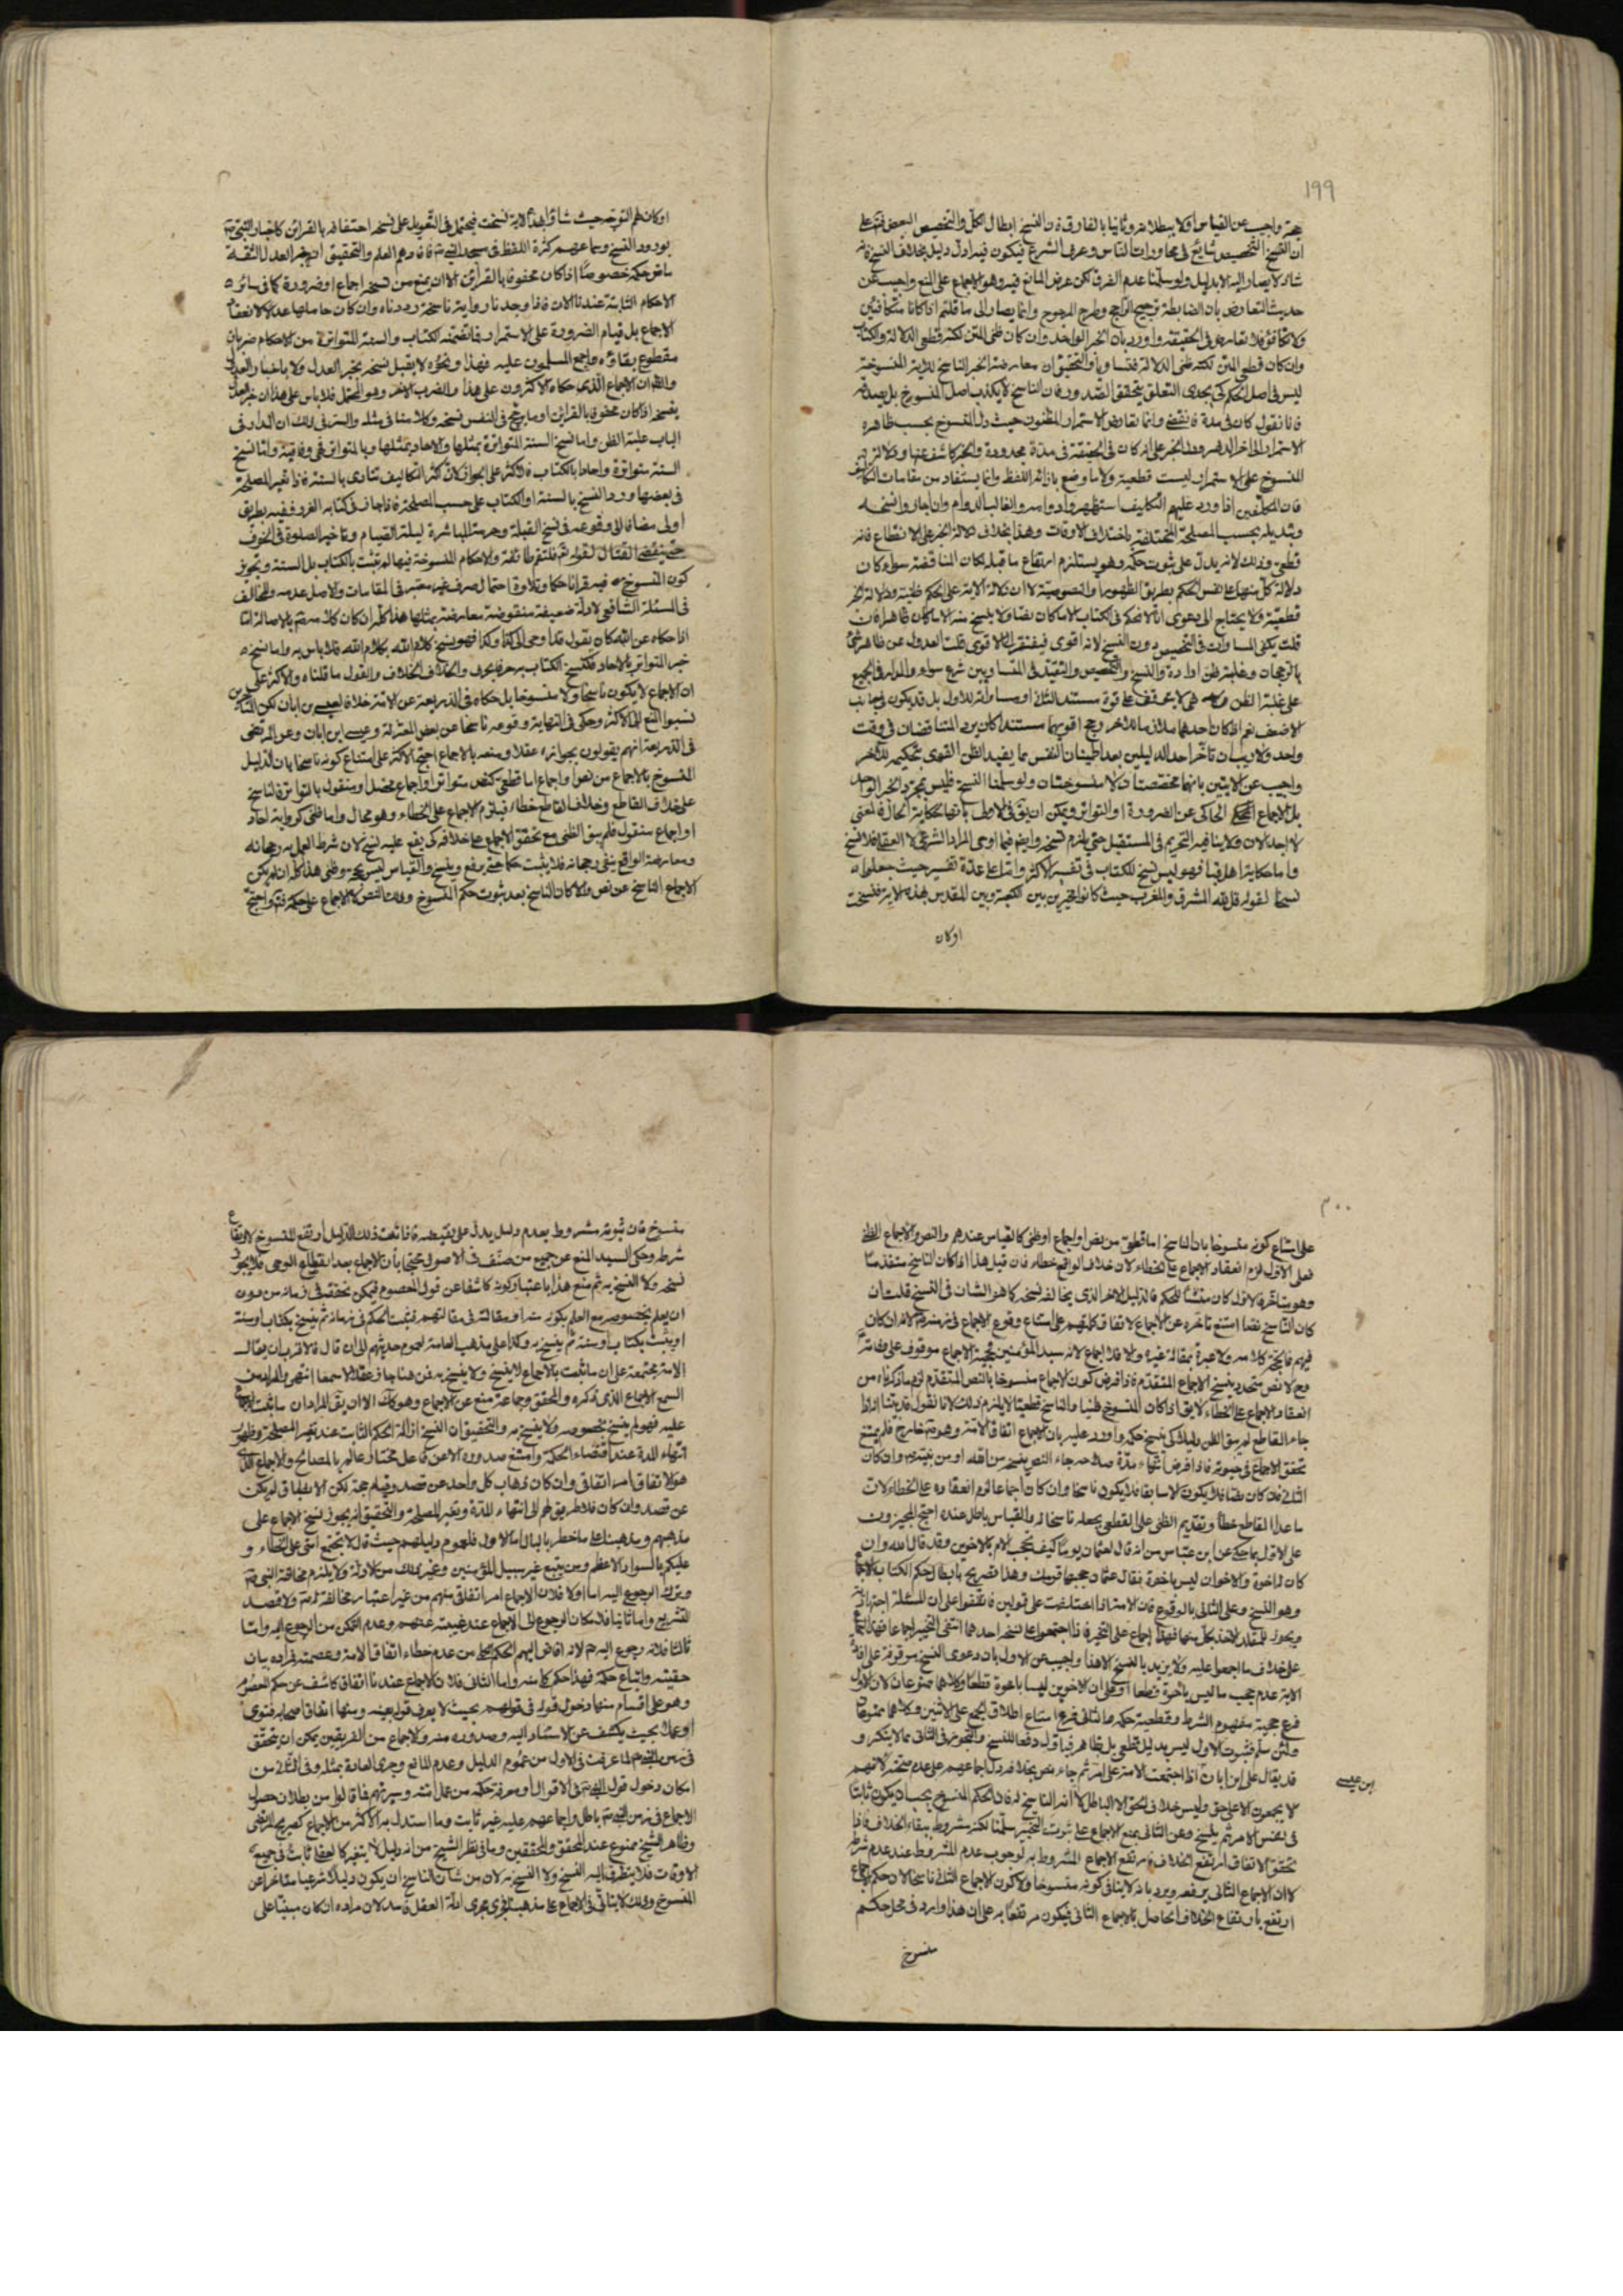 ١٩٩
حجة واجيب عن القياس اولا ببطلانه وثانيا بالفارق فان النسخ ابطال الكل والتخصيص البعض
ان النسخ التخصيص شايع في محاورات الناس وعرف الشرع فيكون فيه ادنى دليل بخلاف النسخ فانه
شاذ لا يصار اليه الا بدليل ولو سلمنا عدم الفرق لكن عرض المانع فيه وهو الاجماع على المنع واجيب عن
حديث التعارض بان الضابطة ترجيح الراجح وطرح المرجوح وانما يصار الى ما قلتم اذا كانا متكافئين
ولا تكافؤ فلا تعارض في الحقيقة واورد بان الخبر الواحد وان كان ظني المتن لكنه قطعي الدلالة والكتاب
وان كان قطعي المتن لكنه ظني الدلالة فتساويا والتحقيق ان معارضة الخبر الناسخ للاية المنسوخة
ليس في اصل الحكم كي يجدى التعلق بتحقق الصدور فان الناسخ لا يكذب اصل المنسوخ بل يصدقه
فانا نقول كان في مدة فانقضى وانما تعارض الاستمرار المظنون حيث دل المنسوخ بحسب ظاهره
الاستمرار الى اخر الدهر ودل الخبر على انه كان في الحقيقة في مدة محدودة والخبر كاشف عنها ودلالة
المنسوخ على الاستمرار ليست قطعية ولا ما وضع بازائه اللفظ وانما يستفاد من مقامات التكاليف
فان المكلفين اذا ورد عليهم التكاليف استظهروا دوامه والغالب الدوام وان جاز نسخه
وتبديله بحسب المصلحة المختلفة باختلاف الاوقات وهذا بخلاف دلالة الخبر على الانقطاع فانه
قطعي وذلك لانه يدل على ثبوت حكمه وهو يستلزم ارتفاع ما قبله لمكان المناقضة سواء كان
دلالة كل منهما على نفس الحكم بطريق الظهور او النصوصية لا ان دلالة الاية على الحكم ظنية ودلالة الخبر
قطعية ولا يحتاج الى دعوى انا لا نحكم في الكتاب الا ما كان نصا ولا ينسخ منه الا ما كان ظاهرا فان
قلت يكفي المساوات في التخصيص دون النسخ لانه اقوى فيفتقر الى الاقوى قلت العدول عن ظاهر
بالرجحان وغلبة ظن ارادة والنسخ والتخصيص والتقييد في المتساويين شرع سواء والمدار في الجميع
على غلبة الظن وهي لا يتوقف على قوة مستند الثاني او مساواته للاول بل قد يكون في جانب
الاضعف نعم اذا كان احدهما ملازما للاخر رجح اقويهما مستندا كان يرد المتناقضان في وقت
واحد ولا ريب ان تاخر احد الدليلين بعد اطمينان النفس مما يفيد الظن القوى بتحكيم الاخر
واجيب عن الايتين بانهما مخصصتان لا منسوختان ولو سلمنا النسخ فليس بمجرد الخبر الواحد
بل الاجماع الحاكى عن الضرورة او التواتر ويمكن ان يق في الاولى بانها حكاية الحال فالمعنى
لا اجد الان ولا ينافيه التحريم في المستقبل حتى يلزم نسخه وايضا فيما اوحى المراد الشرعي لا العقلي فلا نسخ
واما حكاية اهل قبا فهو ليس نسخ للكتاب في تفسير الاكثر وانما على عدة تفسير حيث جعلوا
نسخا لقوله قل لله المشرق والمغرب حيث كانوا مخيرين بين الكعبة وبين المقدس بهذه الاية فنسخت
اوكان
اوكان لهم التوجه حيث شاؤا بهذه الاية نسخت فيحتمل في التعويل على نسخه احتفافه بالقرائن كاخبار النبي ص
بورود النسخ وسماعهم كثرة اللفظ في مسجد النبي ص فافادهم العلم والتحقيق ان خبر العدل الثقة
ماض حكمه خصوصا اذا كان محفوفا بالقرائن الا ان يمنع من نسخه اجماع او ضرورة كما في سائر
الاحكام الثابتة عندنا الان فاذا وجدنا رواية ناسخة رددناه وان كان حاملها عدلا لانعقاد
الاجماع بل قيام الضرورة على الاستمرار فما تضمنه الكتاب والسنة المتواترة من الاحكام ضربان
مقطوع ببقاؤه واجمع المسلمون عليه فهذا ونحوه لا يقبل نسخه بخبر العدل ولا باخبار العدل
والظ ان الاجماع الذى حكاه الاكثرون على هذا والضرب الاخر وهو المحتمل فلا باس على هذا ان خبر العدل
ينسخه اذا كان محفوفا بالقرائن او ما يرجح في النفس نسخه وكلامنا في مثله والسر في ذلك ان المدار في
الباب غلبة الظن واما نسخ السنة المتواترة بمثلها والاحاد بمثلها وبالمتواتر ففي وفاقية واما نسخ
السنة متواترة واحادا بالكتاب فالاكثر على الجواز لان اكثر التكاليف تتادى بالسنة فاذا تغير المصلحة
في بعضها ورد النسخ بالسنة او الكتاب على حسب المصلحة فاذا جاز في كتابه الفرد ففيه بطريق
اولى مضافا الى وقوعه في نسخ القبلة وحرمة المباشرة ليلة الصيام وتاخير الصلوة في الخوف
حتى ينقضى القتال لقوله تم فلتقم طائفة والاحكام المنسوخة فيها لم تثبت بالكتاب بل السنة وتجويز
كون المنسوخ فيه قرانا حكما وتلاوة احتمال صرف غير معتبر في المقامات والاصل عدمه والمخالف
في المسئلة الشافعي لادلة ضعيفة منقوضة معارضة بمثلها هذا كله ان كان كلامه ص بالاصالة اما
اذا حكاه عن الله كان يقول قد اوحى الى كذا وكذا فهو نسخ كلام الله بكلام الله فلا باس به واما نسخ
خبر المتواتر بالاحاد فكنسخ الكتاب به حرفا بحرف والخلاف الخلاف والقول ما قلناه والاكثر على
ان الاجماع لا يكون ناسخا ولا منسوخا بل حكاه في الذريعة عن الامة خلافا لعيسى بن ابان لكن
نسبوا المنع الى الاكثر وحكى في النهاية وقوعه ناسخا عن بعض المعتزلة وعيسى ابن ابان وعن المرتضى
في الذريعة انهم يقولون بجوازه عقلا ومنعه بالاجماع احتج الاكثر على امتناع كونه ناسخا بان الدليل
المنسوخ بالاجماع من نص او اجماع اما قطعي كنص متواتر او اجماع محصل او منقول بالتواتر فالناسخ
على خلاف القاطع وخلاف القاطع خطاء فيلزم الاجماع على الخطاء وهو محال واما ظني كرواية احاد
او اجماع منقول فلم يبق الظني مع تحقق الاجماع على خلافه كي يقع عليه نسخ لان شرط العمل به رجحانه
ومعارضة الواقع ينفى رجحانه فلا يثبت حكما حتى يرفع وينسخ والقياس ليس بحجة وظني هذا كله ان لم يكن
الاجماع الناسخ عن نص والا كان الناسخ بعد ثبوت حكم المنسوخ وذلك النص لا الاجماع على حكمه فتم واحتج
٢٠٠
على امتناع كونه منسوخا بان الناسخ اما قطعي من نص او اجماع او ظني كالقياس عندهم والنص والاجماع الظني
فعلى الاول لزم انعقاد الاجماع على الخطاء لان خلاف الواقع خطاء فان قيل هذا اذا كان الناسخ متقدما
وهو متاخر فالاول كان مثبتا للحكم فالدليل الاخر الذى يخالفه نسخه كما هو الشان في النسخ قلت ان
كان الناسخ نصا امتنع تاخره عن الاجماع لاتفاق كلمتهم على امتناع وقوع الاجماع في زمنه ص لانه ان كان
فيهم فالحجة كلامه ولا عبرة بمقالة غيره والا فلا اجماع لانه سيد المؤمنين فحجية الاجماع موقوف على وفاته
وح لا نص متجدد ينسخ الاجماع المتقدم فاذا فرض كون الاجماع منسوخا بالنص المتقدم لزم ما ذكرناه من
انعقاد الاجماع على الخطاء لا يق اذا كان المنسوخ ظنيا والناسخ قطعيا لا يلزم ذلك لانا نقول قد بينا اذا
جاء القاطع لم يبق الظن دليلا كي ينسخ حكمه واورد عليه بان الاجماع اتفاق الامة وهو ص خارج فلم يمتنع
تحقق الاجماع في حيوته فاذا فرض انتهاء مدة صلاحه جاء النص ينسخه من الله او من نبيه ص وان كان
الثاني فان كان نصا فلا يكون الا سابقا فلا يكون ناسخا وان كان اجماعا لزم انعقاده على الخطاء لان
ما عدا القاطع خطأ وتقديم الظني على القطعي يجعله ناسخا له والقياس باطل عندنا احتج المجيزون
على الاول بما حكى عن ابن عباس من انه قال لعثمان يوما كيف تحجب الام بالاخوين وقد قال الله وان
كان له اخوة والاخوان ليس باخوة فقال عثمان حجبها قومك وهذا تصريح بابطال حكم الكتاب بالاجماع
وهو النسخ وعلى الثاني بالوقوع فان الامة اذا اختلفت على قولين فاتفقوا على ان المسئلة اجتهادية
ويجوز للمقلد الاخذ بكل منهما فهذا اجماع على التخيير فاذا اجتمعوا على نسخ احدهما انتفى التخيير اجماعا فهذا الاجماع
على خلاف ما اجمعوا عليه ولا يريد بالنسخ الا هذا واجيب عن الاول بان دعوى النسخ موقوفة على افادة
الاية عدم حجب ما ليس باخوة قطعا وعلى ان الاخوين ليسا باخوة قطعا وكلاهما ممنوعان لان الاول
فرع حجية مفهوم الشرط وقطعية حكمه والثاني فرع امتناع اطلاق الجمع على الاثنين وكلاهما ممنوعان
ولئن سلم فثبوت الاول ليس بدليل قطعي بل ظاهر فياول دفعا للنسخ والتجوز في الثاني مما لا ينكر و
قد يقال على ابن ابان اذا اجتمعت الامة على امر ثم جاء نص بخلافه دل اجماعهم على عدم صحته لانهم
لا يجمعون الا على حق وليس خلاف الحق الا الباطل لا انه الناسخ له فان الحكم المنسوخ يجب ان يكون ثابتا
في نفس الامر ثم ينسخ وعن الثاني بمنع الاجماع على ثبوت التخيير سلمنا لكنه مشروط ببقاء الخلاف فاذا
تحقق الاتفاق ارتفع الخلاف فارتفع الاجماع المشروط به لوجوب عدم المشروط عند عدم شرطه
لا ان الاجماع الثاني يرفعه ويرد بانه لا ينافي كونه منسوخا ولا كون الاجماع الثاني ناسخا لان حكم الاجماع
ارتفع بارتفاع الخلاف الحاصل بالاجماع الثاني فيكون مرتفعا به على ان هذا وارد في محل حكم
بن عيسى
منسوخ
منسوخ فان ثبوته مشروط بعدم دليل يدل على نقيضه فاذا تحقق ذلك الدليل ارتفع المنسوخ لارتفاع
شرطه وحكى السيد المنع عن جميع من صنف في الاصول محتجا بان الاجماع بعد انقطاع الوحي فلا يجوز
نسخه ولا النسخ به ثم منع هذا باعتبار كونه كاشفا عن قول المعصوم فيمكن تحققه في زمانه من دون
ان يعلم بخصوصه مع العلم بكونه منه او مقالته في مقالتهم فيثبت الحكم في زمانه ثم ينسخ بكتاب او سنة
او يثبت بكتاب او سنة ثم ينسخ به وكذا على مذهب العامة لعموم حديثهم الى ان قال فالاقرب ان يقال
الامة مجتمعة على ان ما ثبت بالاجماع لا ينسخ ولا ينسخ به فمن هنا جاز عقلا لا سمعا انتهى والمراد من
السمع الاجماع الذى ذكره والمحقق وجماعة منع عن الاجماع وهو كك الا ان يق المراد ان ما ثبت الاجماع
عليه فهو لم ينسخ بخصوصه ولا ينسخ به والتحقيق ان النسخ ازالة الحكم الثابت عند تغير المصلحة وظهور
انتهاء المدة عند اقتضاء الحكمة وامتنع صدوره الا عن فاعل مختار عالم بالمصالح والاجماع الذى
هو الاتفاق امر اتفاقي وان كان ذهاب كل واحد عن قصد وقيام حجة لكن الانطباق لم يكن
عن قصد وان كان فلا طريق لهم الى انتهاء المدة وتغير المصلحة والتحقيق انه يجوز نسخ الاجماع على
مذهبهم ومذهبنا على ما خطر بالبال اما الاول فلعموم دليلهم حيث قال لا تجتمع امتي على الخطاء و
عليكم بالسواد الاعظم ومن يتبع غير سبيل المؤمنين وغير ذلك من الادلة ولا يلزم مخالفة النبي ص
وترك الرجوع اليه اما اولا فلان الاجماع امر اتفاقي منهم من غير اعتبار مخالفة له ص ولا قصد
للتشريع واما ثانيا فلامكان الرجوع الى الاجماع عند غيبته عنهم وعدم التمكن من الرجوع اليه واما
ثالثا فلانه رجوع اليه ص لانه افاض اليهم الحكم من عدم خطاء اتفاق الامة وعصمته فمراده بيان
حقيته واتباع حكمه فهذا حكم كلامه واما الثاني فلان الاجماع عندنا اتفاق كاشف عن حكم المعصوم
وهو على اقسام منها دخول قوله في قولهم بحيث لا يعرف قوله بعينه ومنها اتفاق اصحابه فتوى
او عملا بحيث يكشف عن الاستناد اليه وصدوره منه والاجماع من الفريقين يمكن ان يتحقق
في زمن النبي ص لما عرفت في الاول من عموم الدليل وعدم المانع وجرى العادة بمثله وفى الثاني من
امكان دخول قول النبي ص في الاقوال او معرفة حكمه من عمل امته وسيرتهم فما قالوا من بطلان حصول
الاجماع في زمن النبي ص باطل واجماعهم عليه غير ثابت وما استدل به الاكثر من الاجماع كصريح المرتضى
وظاهر الشيخ ممنوع عند المحقق والمحققين وما في نظر الشيخ من انه دليل لا يتغير كالعقل ثابت في جميع
الاوقات فلا يتطرق اليه النسخ ولا النسخ به لان من شان الناسخ ان يكون دليلا شرعيا متاخرا عن
المنسوخ وذلك لا يتاتى في الاجماع على مذهبنا لجرى مجرى ادلة العقل فاسد لان مراده ان كان مبنيا على